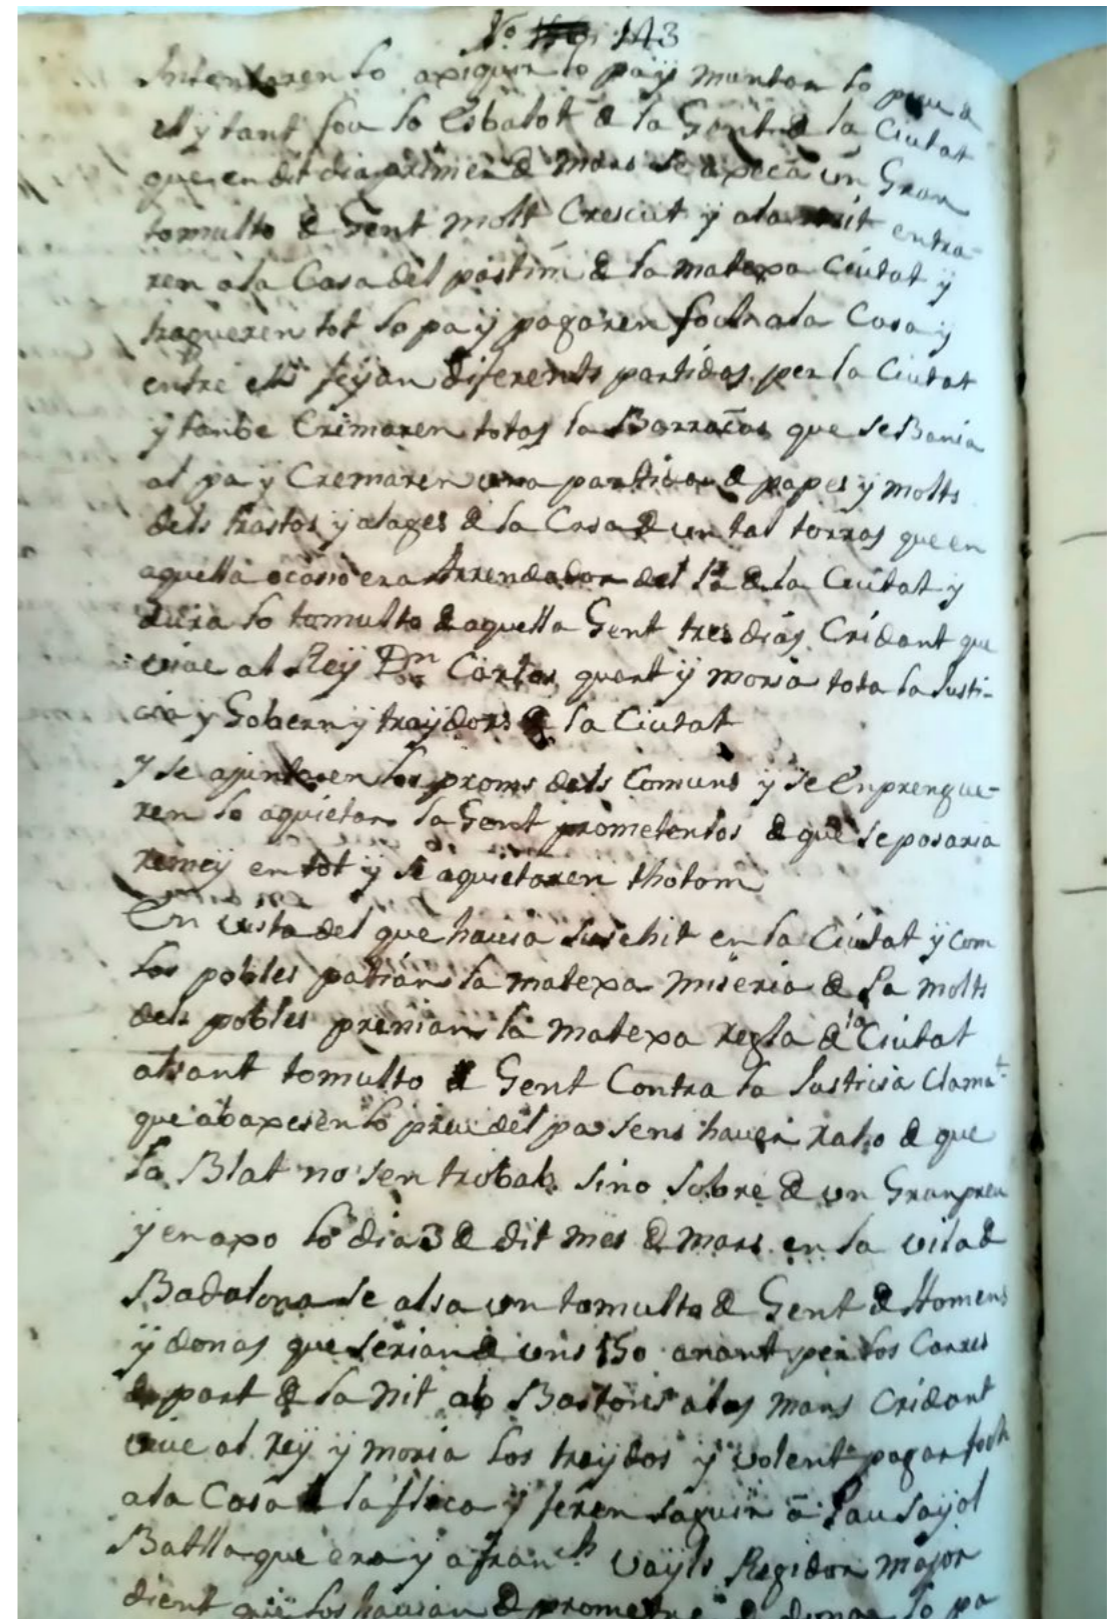 Nº 143
Intentaren lo axiguir lo pay muntar lo preu a
ell y tant fou lo Esbalot de la Gent de la Ciutat
que en dit dia primer de Mars se axecà un Gran
tomulto de Gent molt Crescut y a la nit entra-
ren a la Casa del pastim de la matexa Ciutat y
tragueren tot lo pa y pagaren foch a la Casa y
entre ells feyan diferents partidas per la Ciutat
y tanbe Cremaren totas la Barracas que se Bania
al pa y Cremaren una partida de papes y molts
dels trastos y alages de la Casa de un tal torras que en
aquella ocasio era Arrendador del Pa de la Ciutat y
dura lo tomulto de aquella Gent tres dias Cridant que
viue al Rey Dn Carlos quart y moria tota la Justi-
cia y Gobern y traydors de la Ciutat
Y se ajuntaren los proms dels Comuns y se Enprengue-
ren lo aquietar la Gent prometenlos de que se posaria
remey en tot y se aquietaren thotom
En vista del que hauia susehit en la Ciutat y com
los pobles patian la matexa miseria de Pa molts
dels pobles prenian la matexa regla de la Ciutat
alsant tomulto de Gent Contra la Justisia Clamat
que abaxesen lo preu del pa sens hauer raho de que
la Blat no sen trobab sino sobre de un Gran preu
y en axo lo dia 3 de dit mes de mars en la vila de
Badalona se alsa un tomulto de Gent de Homens
y donas que serian de uns 150 anant per los Carres
de part de la Nit ab Bastons a las mans Cridant
viue al rey y moria los traydos y volent pagar foch
a la Casa de la fleca y feren saguir a Pau Sayol
Batlla que era y a Franch Vayls Regidor major
dient que los hauian de prometre de donar lo pa